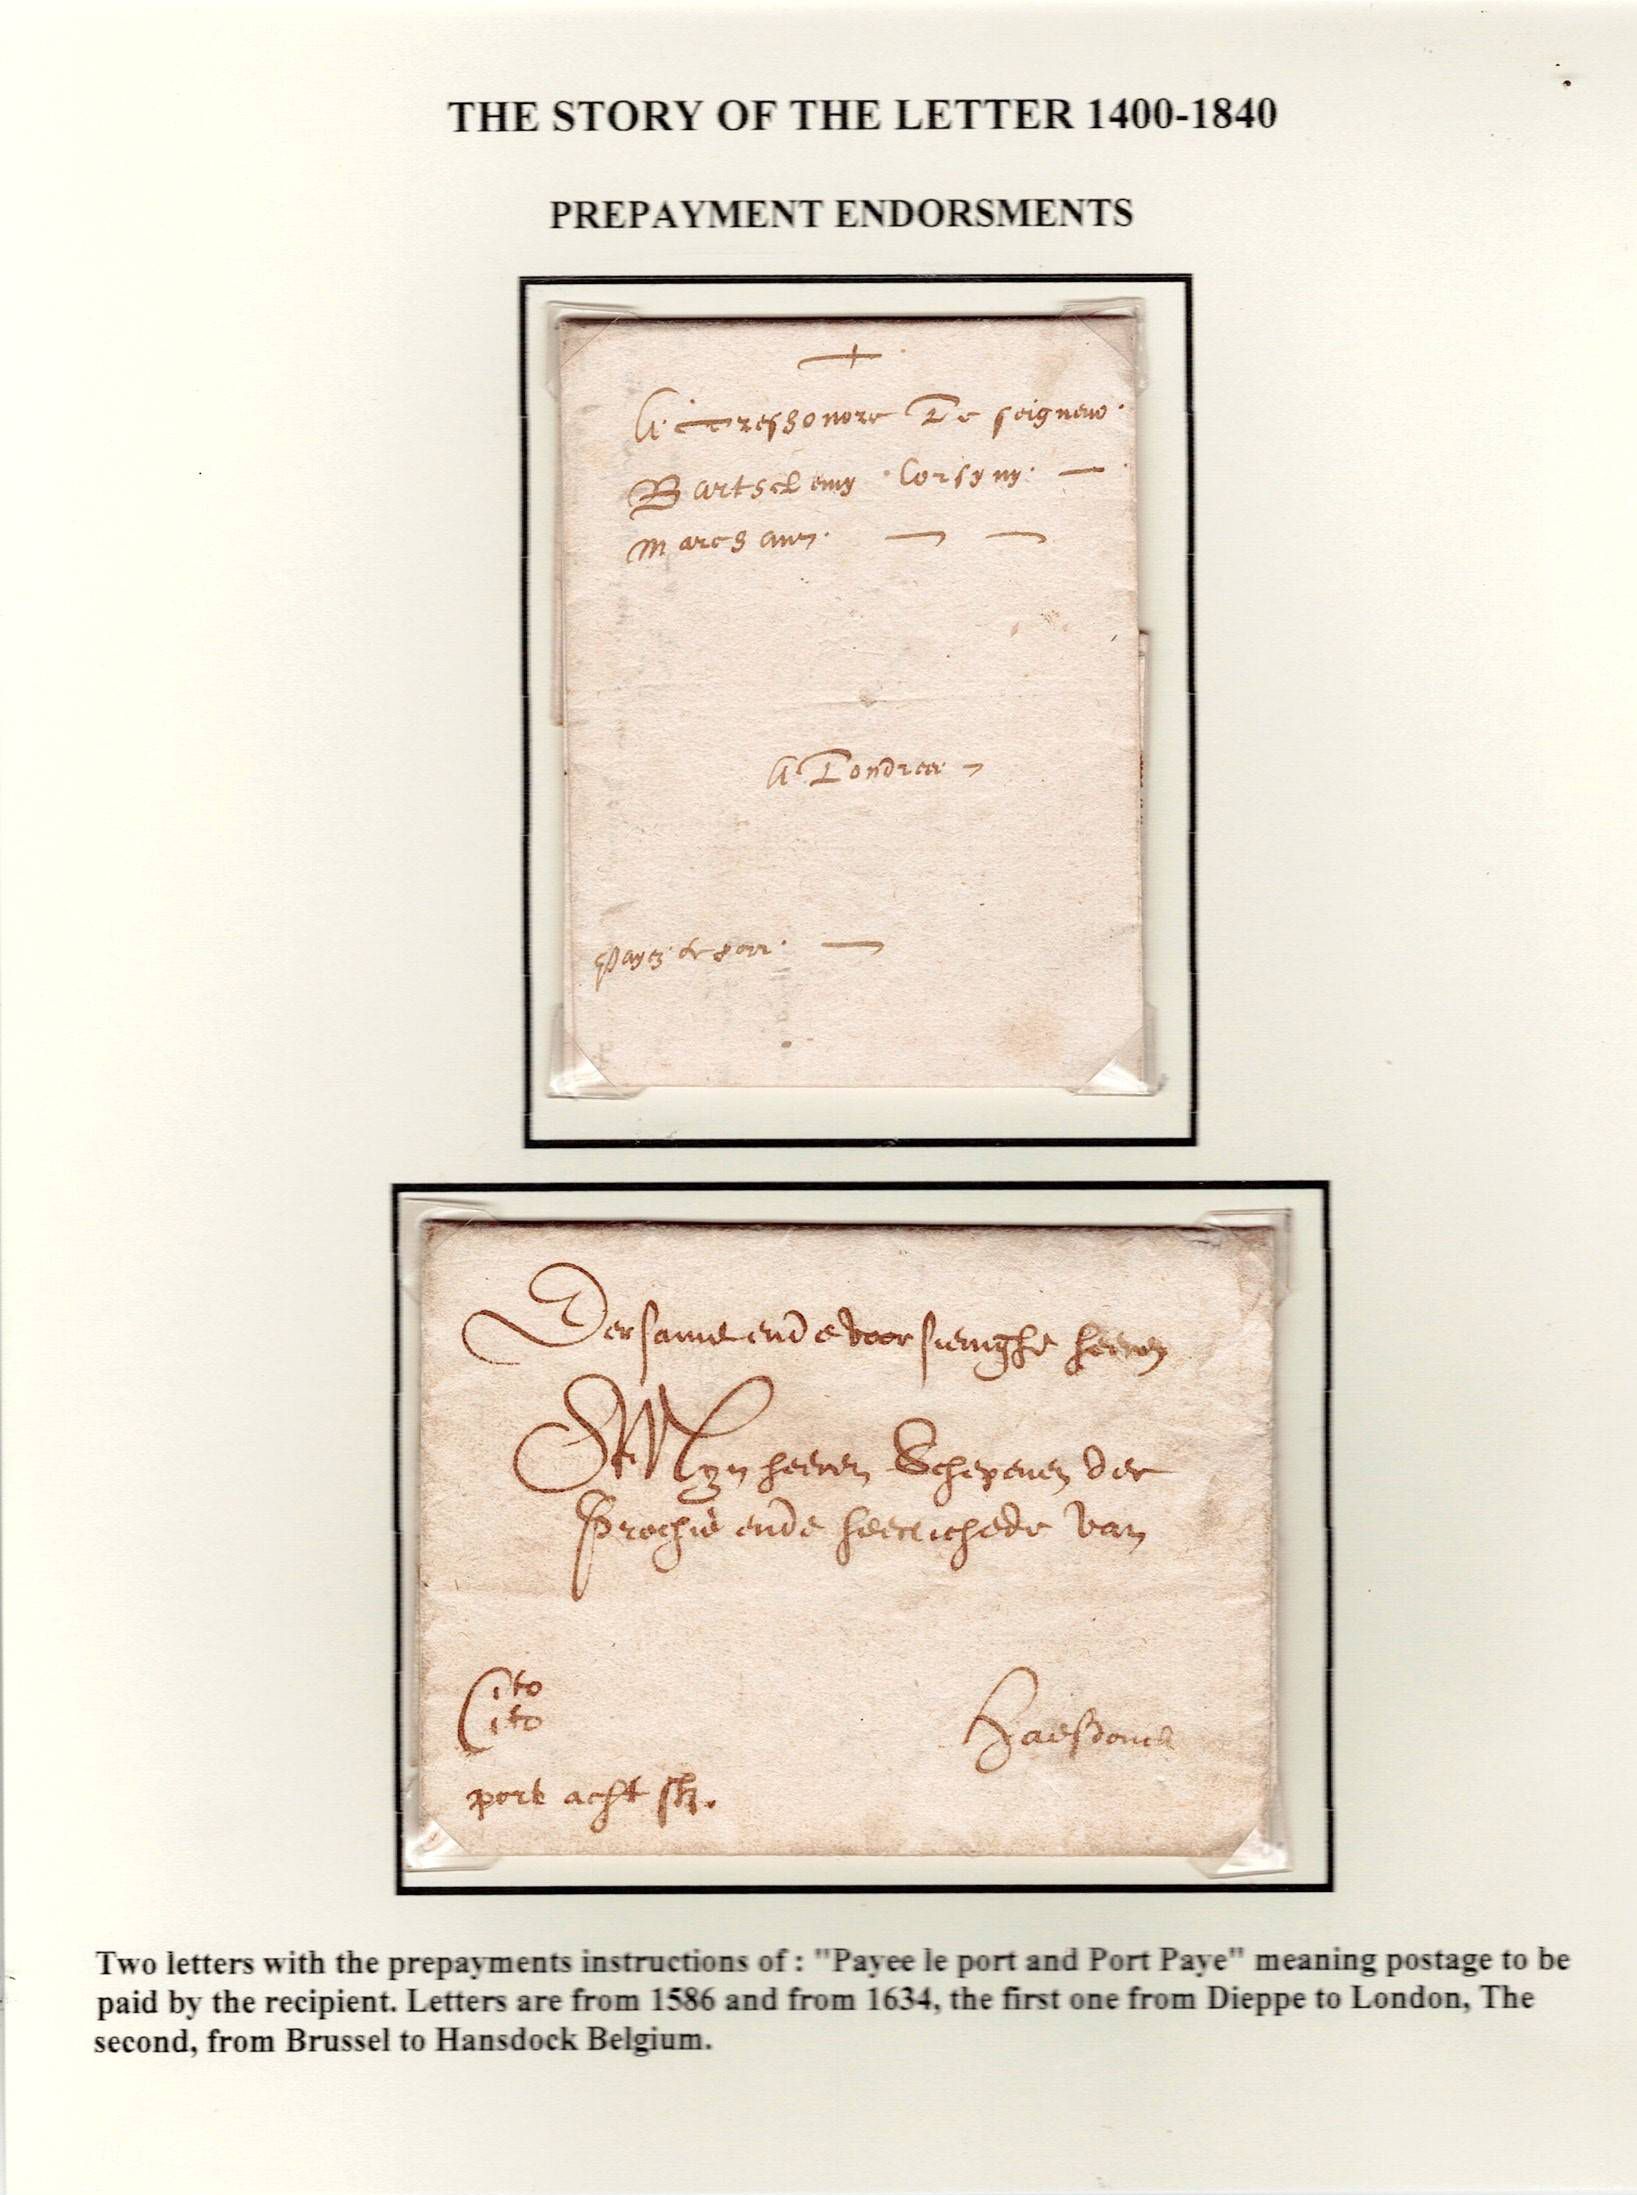 THE STORY OF THE LETTER 1400-1840
PREPAYMENT ENDORSMENTS
A Treshonore Le seigneur
Bartholemy Corsyny
Marchant
A Londres
Payez le port
Eersame ende voorsienighe heeren
Myn heeren Schepenen der
Prochie ende heerlichede van
Cito
Cito
Haesdonck
port acht st.
Two letters with the prepayments instructions of : "Payee le port and Port Paye" meaning postage to be
paid by the recipient. Letters are from 1586 and from 1634, the first one from Dieppe to London, The
second, from Brussel to Hansdock Belgium.